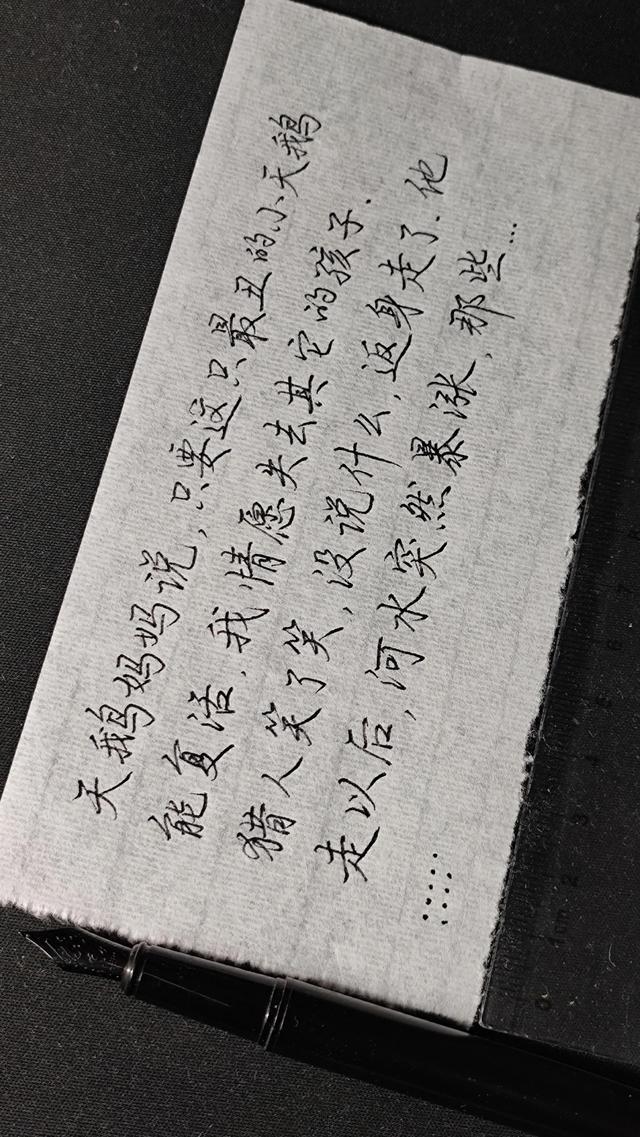 天鹅妈妈说，只要这只最丑的小天鹅
能复活，我情愿失去其它的孩子.
猎人笑了笑，没说什么，返身走了.他
走以后，河水突然暴涨，那些…
……
0 1cm 2 3 4 5 6 7